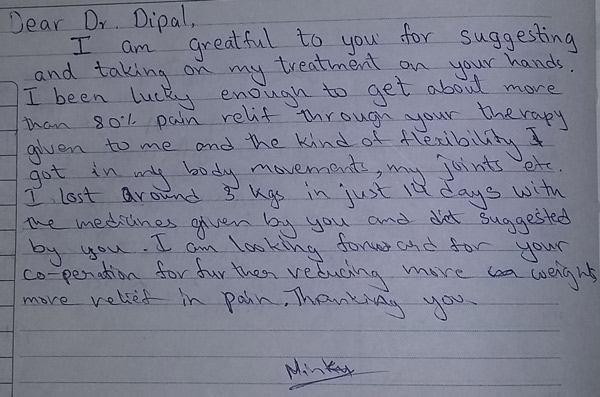 Dear Dr. Dipal,
I am greatful to you for suggesting
and taking on my treatment on your hands.
I been lucky enough to get about more
than 80% pain relif through your therapy
given to me and the kind of flexibility I
got in my body movements, my joints etc.
I lost around 3 kgs in just 14 days with
the medicines given by you and diet suggested
by you. I am looking forward for your
co-peration for further reducing more weight,
more relief in pain. Thanking you.
Minky